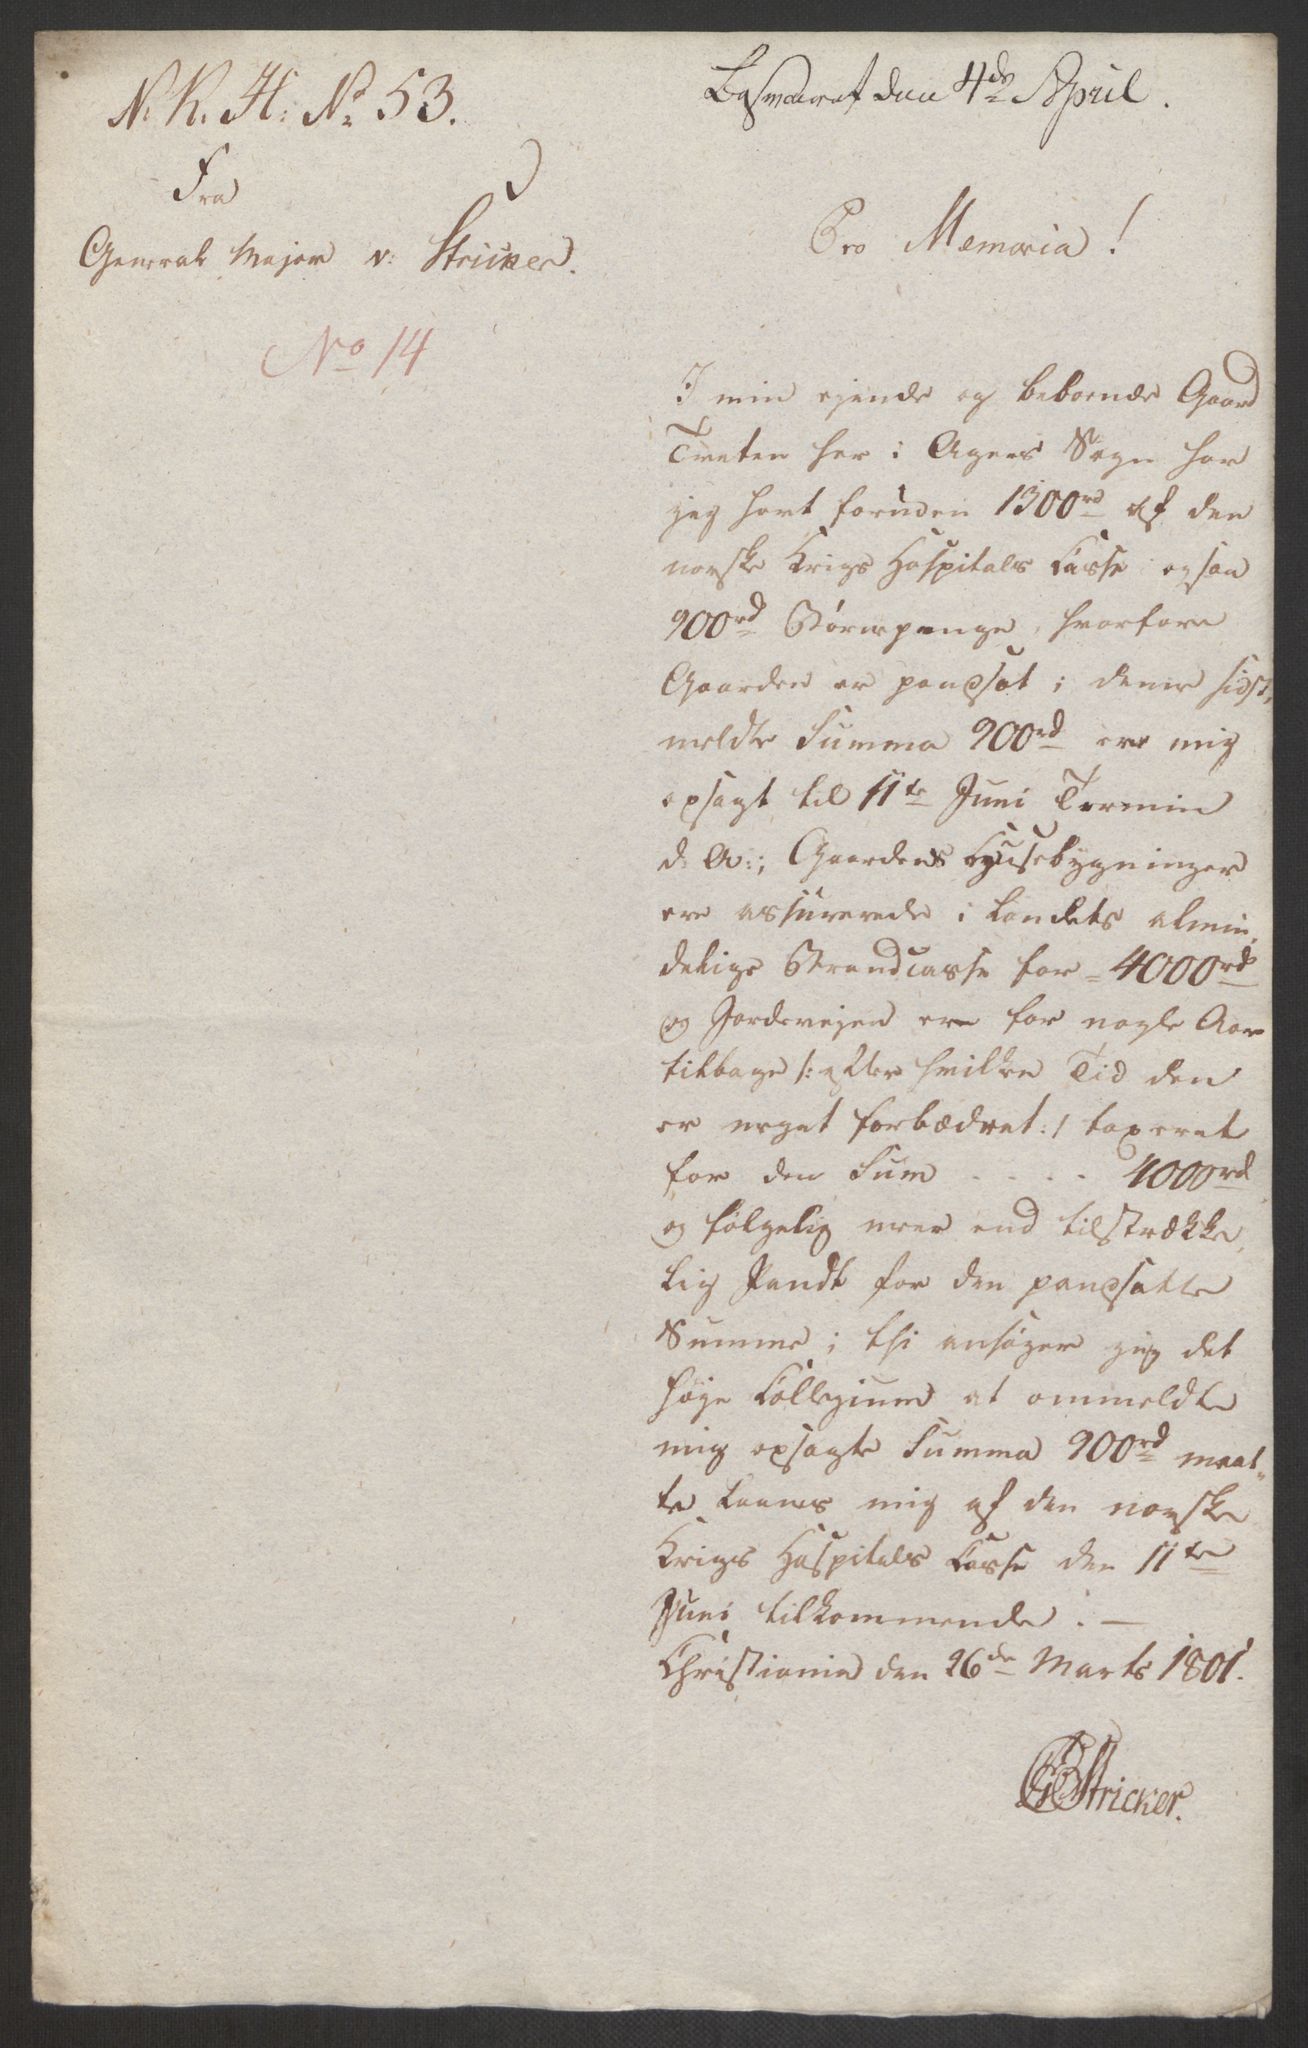 N. K. H: No 53.
Fra
General Major v: Stricker.
No 14
Besvaret den 4de April.
Pro Memoria!
I min ejende og beboende Gaard
Tveten her i Agers Sogn har
jeg havt foruden 1300rd af den
norske Krigs Hospitals Casse ogsaa
900rd Børnepenge, hvorfore
Gaarden er pansat; denne sidst,
meldte Summa 900rd ere mig
opsagt til 11te Juni Termin
d: A:; Gaardens Huusebygninger
ere assurerede i Landets almin,
delige Brandcasse for = 4000rd
og Jordevejen ere for nogle Aar
tilbage /: efter hvilken Tid den
er noget forbædret :/ taxeret
for den Sum . . . . 4000rd
og følgelig meer end tilstrække,
lig Pandt for den pansatte
Summe; thi ansøger jeg det
høje Collegium at ommeldte
mig opsagte Summa 900rd maat,,
te laanes mig af den norske
Krigs Hospitals Casse den 11te
Juni tilkommende. —
Christiania den 26de Marts 1801.
Stricker.